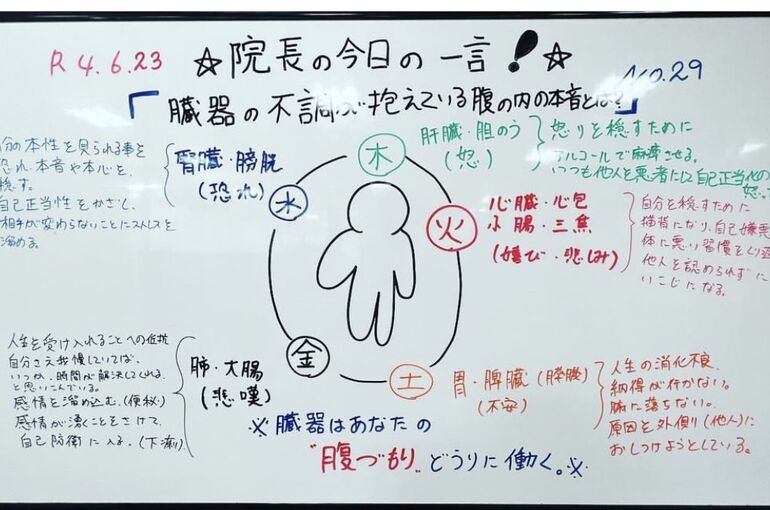 R 4.6.23
☆院長の今日の一言！☆
No.29
「臓器の不調が抱えている腹の内の本音とは？」
木
肝臓・胆のう
(怒)
怒りを隠すために
アルコールで麻痺させる。
いつも他人を悪者にし自己正当化の
火
心臓・心包
小腸・三焦
(喜び・悲しみ)
自分を隠すために
猫背になり、自己嫌悪
体に悪い習慣をくり返
他人を認められずに
いこじになる。
土
胃・脾臓(膵臓)
(不安)
人生の消化不良
納得が行かない。
腑に落ちない。
原因を外側(他人)に
おしつけようとしている。
金
肺・大腸
(悲嘆)
人生を受け入れることへの抵抗
自分さえ我慢していれば、
いつか、時間が解決してくれる、
と思いこんでいる。
感情を溜め込む。(便秘)
感情が湧くことをさけて
自己防衛に入る。(下痢)
水
腎臓・膀胱
(恐れ)
分の本性を見られる事を
恐れ、本音や本心を、
隠す。
自己正当性をかざし、
相手が変わらないことにストレスを
溜める。
※臓器はあなたの
"腹づもり"どうりに働く。※